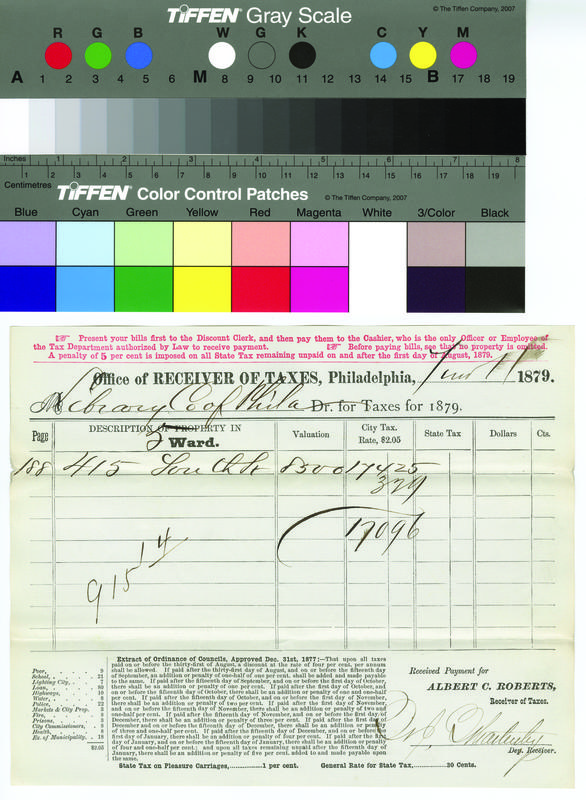 TIFFEN Gray Scale
© The Tiffen Company, 2007
R G B W G K C Y M
A 1 2 3 4 5 6 M 8 9 10 11 12 13 14 15 B 17 18 19
Inches 1 2 3 4 5 6 7 8
Centimetres 1 2 3 4 5 6 7 8 9 10 11 12 13 14 15 16 17 18 19
TIFFEN Color Control Patches
© The Tiffen Company, 2007
Blue Cyan Green Yellow Red Magenta White 3/Color Black
Present your bills first to the Discount Clerk, and then pay them to the Cashier, who is the only Officer or Employee of
the Tax Department authorized by Law to receive payment. Before paying bills, see that no property is omitted.
A penalty of 5 per cent is imposed on all State Tax remaining unpaid on and after the first day of August, 1879.
Office of RECEIVER OF TAXES, Philadelphia, 1879.
M Library Co of Phila Dr. for Taxes for 1879.
Page DESCRIPTION OF PROPERTY IN 5 Ward. Valuation City Tax. Rate, $2.05 State Tax Dollars Cts.
188 415 8500 17425
329
17096
14
915
Poor, 9
School, 21
Lighting City, 7
Loan, 80
Highways, 10
Water, 8
Police, 22
Markets & City Prop. 3
Fire, 8
Prisons, 5
City Commissioners, 5
Health, 8
Ex. of Municipality. 18
$2.05
Extract of Ordinance of Councils, Approved Dec. 31st, 1877:—That upon all taxes
paid on or before the thirty-first of August, a discount at the rate of four per cent, per annum
shall be allowed. If paid after the thirty-first day of August, and on or before the fifteenth day
of September, an addition or penalty of one-half of one per cent. shall be added and made payable
to the same. If paid after the fifteenth day of September, and on or before the first day of October,
there shall be an addition or penalty of one per cent. If paid after the first day of October, and
on or before the fifteenth day of October, there shall be an addition or penalty of one and one-half
per cent. If paid after the fifteenth day of October, and on or before the first day of November,
there shall be an addition or penalty of two per cent. If paid after the first day of November,
and on or before the fifteenth day of November, there shall be an addition or penalty of two and
one-half per cent. If paid after the fifteenth day of November, and on or before the first day of
December, there shall be an addition or penalty of three per cent. If paid after the first day of
December and on or before the fifteenth day of December, there shall be an addition or penalty
of three and one-half per cent. If paid after the fifteenth day of December, and on or before the
first day of January, there shall be an addition or penalty of four per cent. If paid after the first
day of January, and on or before the fifteenth day of January, there shall be an addition or penalty
of four and one-half per cent.; and upon all taxes remaining unpaid after the fifteenth day of
January, there shall be an addition or penalty of five per cent. added to and made payable upon
the same.
State Tax on Pleasure Carriages, 1 per cent. General Rate for State Tax, 30 Cents.
Received Payment for
ALBERT C. ROBERTS,
Receiver of Taxes.
Dep. Receiver.